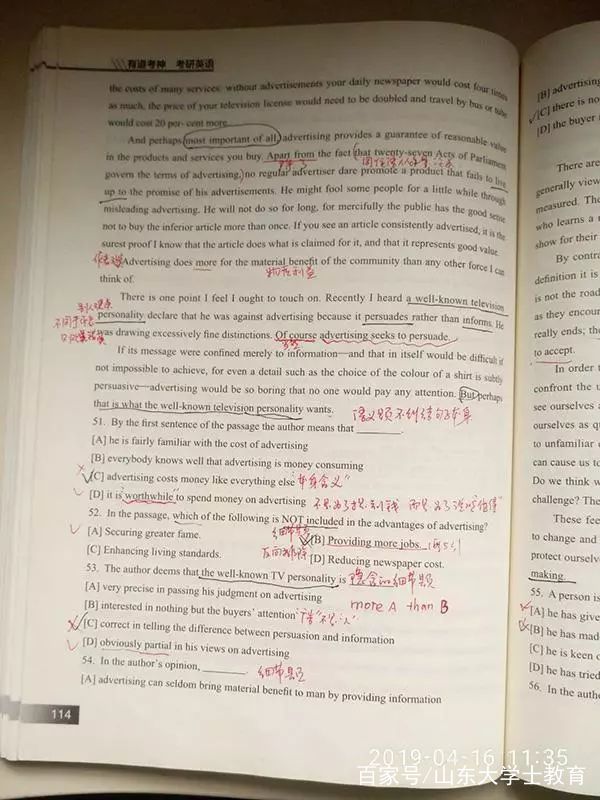 有道考神 考研英语
the costs of many services: without advertisements your daily newspaper would cost four times
as much, the price of your television license would need to be doubled and travel by bus or tube
would cost 20 per cent more.
And perhaps most important of all, advertising provides a guarantee of reasonable value
in the products and services you buy. Apart from the fact that twenty-seven Acts of Parliament
govern the terms of advertising, no regular advertiser dare promote a product that fails to live
up to the promise of his advertisements. He might fool some people for a little while through
misleading advertising. He will not do so for long, for mercifully the public has the good sense
not to buy the inferior article more than once. If you see an article consistently advertised, it is the
surest proof I know that the article does what is claimed for it, and that it represents good value.
Advertising does more for the material benefit of the community than any other force I can
物质利益
think of.
There is one point I feel I ought to touch on. Recently I heard a well-known television
personality declare that he was against advertising because it persuades rather than informs. He
was drawing excessively fine distinctions. Of course advertising seeks to persuade.
If its message were confined merely to information—and that in itself would be difficult if
not impossible to achieve, for even a detail such as the choice of the colour of a shirt is subtly
persuasive—advertising would be so boring that no one would pay any attention. But perhaps
that is what the well-known television personality wants.
51. By the first sentence of the passage the author means that ______.
[A] he is fairly familiar with the cost of advertising
[B] everybody knows well that advertising is money consuming
[C] advertising costs money like everything else "本身含义"
[D] it is worthwhile to spend money on advertising
52. In the passage, which of the following is NOT included in the advantages of advertising?
细节题
[A] Securing greater fame. [B] Providing more jobs.
[C] Enhancing living standards. [D] Reducing newspaper cost.
53. The author deems that the well-known TV personality is
[A] very precise in passing his judgment on advertising
more A than B
[B] interested in nothing but the buyers' attention
[C] correct in telling the difference between persuasion and information
[D] obviously partial in his views on advertising
54. In the author's opinion, ______. 细节题
[A] advertising can seldom bring material benefit to man by providing information
114
[B] advertising
[C] there is no
[D] the buyer
There are
generally view
measured. The
who learns a
show for their
By contra
definition it is
is not the road
as they encoura
really ends; the
to accept.
In order t
confront the u
see ourselves a
ourselves as qu
to unfamiliar
can cause us to
Do we think w
challenge? The
These feel
to change and
protect ourselve
making.
55. A person is
[A] he has give
[B] he has made
[C] he is keen o
[D] he has tried
56. In the autho
2019-04-16 11:35
百家号/山东大学士教育